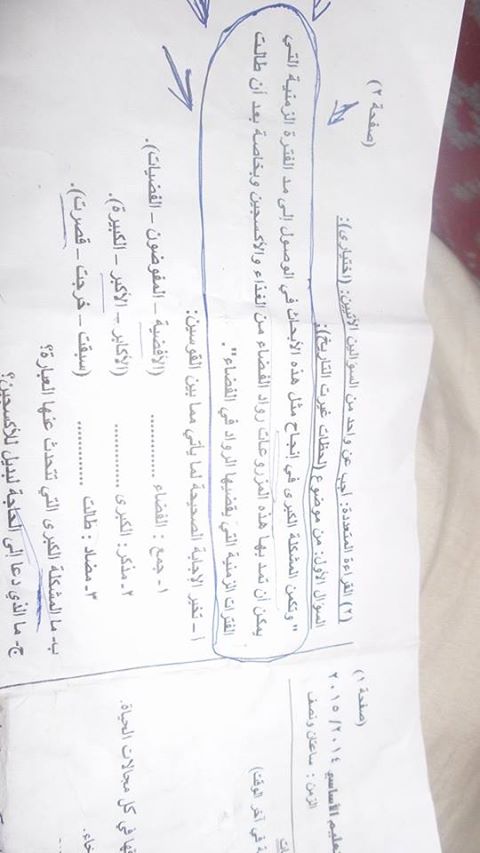 (صفحة ٢)
(٢) القراءة المتعددة: أجب عن واحد من السؤالين الآتيين: (اختياري):
السؤال الأول: من موضوع (لحظات غيرت التاريخ):
"وتكمن المشكلة الكبرى في إنجاح مثل هذه الأبحاث في الوصول إلى مد الفترة الزمنية التي
يمكن أن تمد بها هذه المزروعات رواد الفضاء من الغذاء والأكسجين وبخاصة بعد أن طالت
الفترات الزمنية التي يقضيها الرواد في الفضاء".
أ - تخير الإجابة الصحيحة لما يأتي مما بين القوسين:
١- جمع : الفضاء ............ (الأفضية - المفوضون - الفضيات).
٢- مذكر: الكبرى ............ (الأكابر - الأكبر - الكبيرة).
٣- مضاد : طالت ............ (سبقت - خرجت - قصرت).
ب- ما المشكلة الكبرى التي تتحدث عنها العبارة؟
ج- ما الذي دعا إلى الحاجة لبديل للأكسجين؟
(صفحة ١)
تعليم الأساسي ٢٠١٤/ ٢٠١٥
الزمن : ساعتان ونصف
ة في آخر الوقت)
في كل مجالات الحياة.